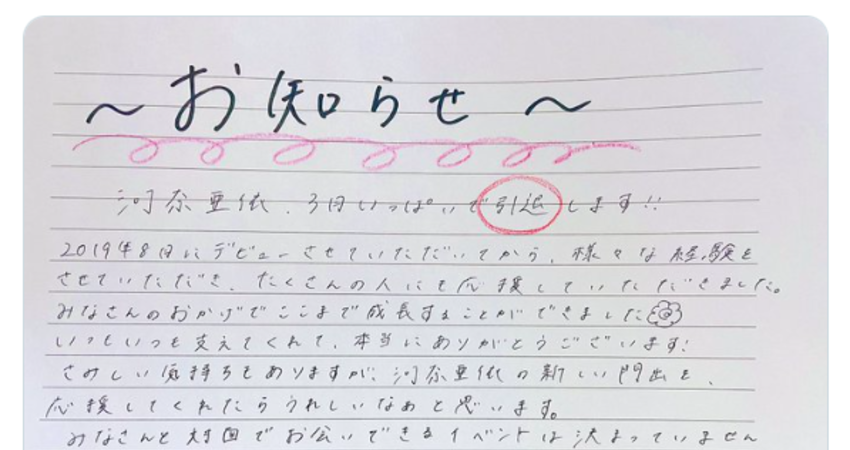 〜お知らせ〜
河奈亜依、3月いっぱいで引退します!!
2019年8月にデビューさせていただいてから、様々な経験を
させていただき、たくさんの人にも応援していただきました。
みなさんのおかげでここまで成長することができました
いつもいつも支えてくれて、本当にありがとうございます!
さみしい気持ちもありますが、河奈亜依の新しい門出を、
応援してくれたらうれしいなぁと思います。
みなさんと対面でお会いできるイベントは決まっていません